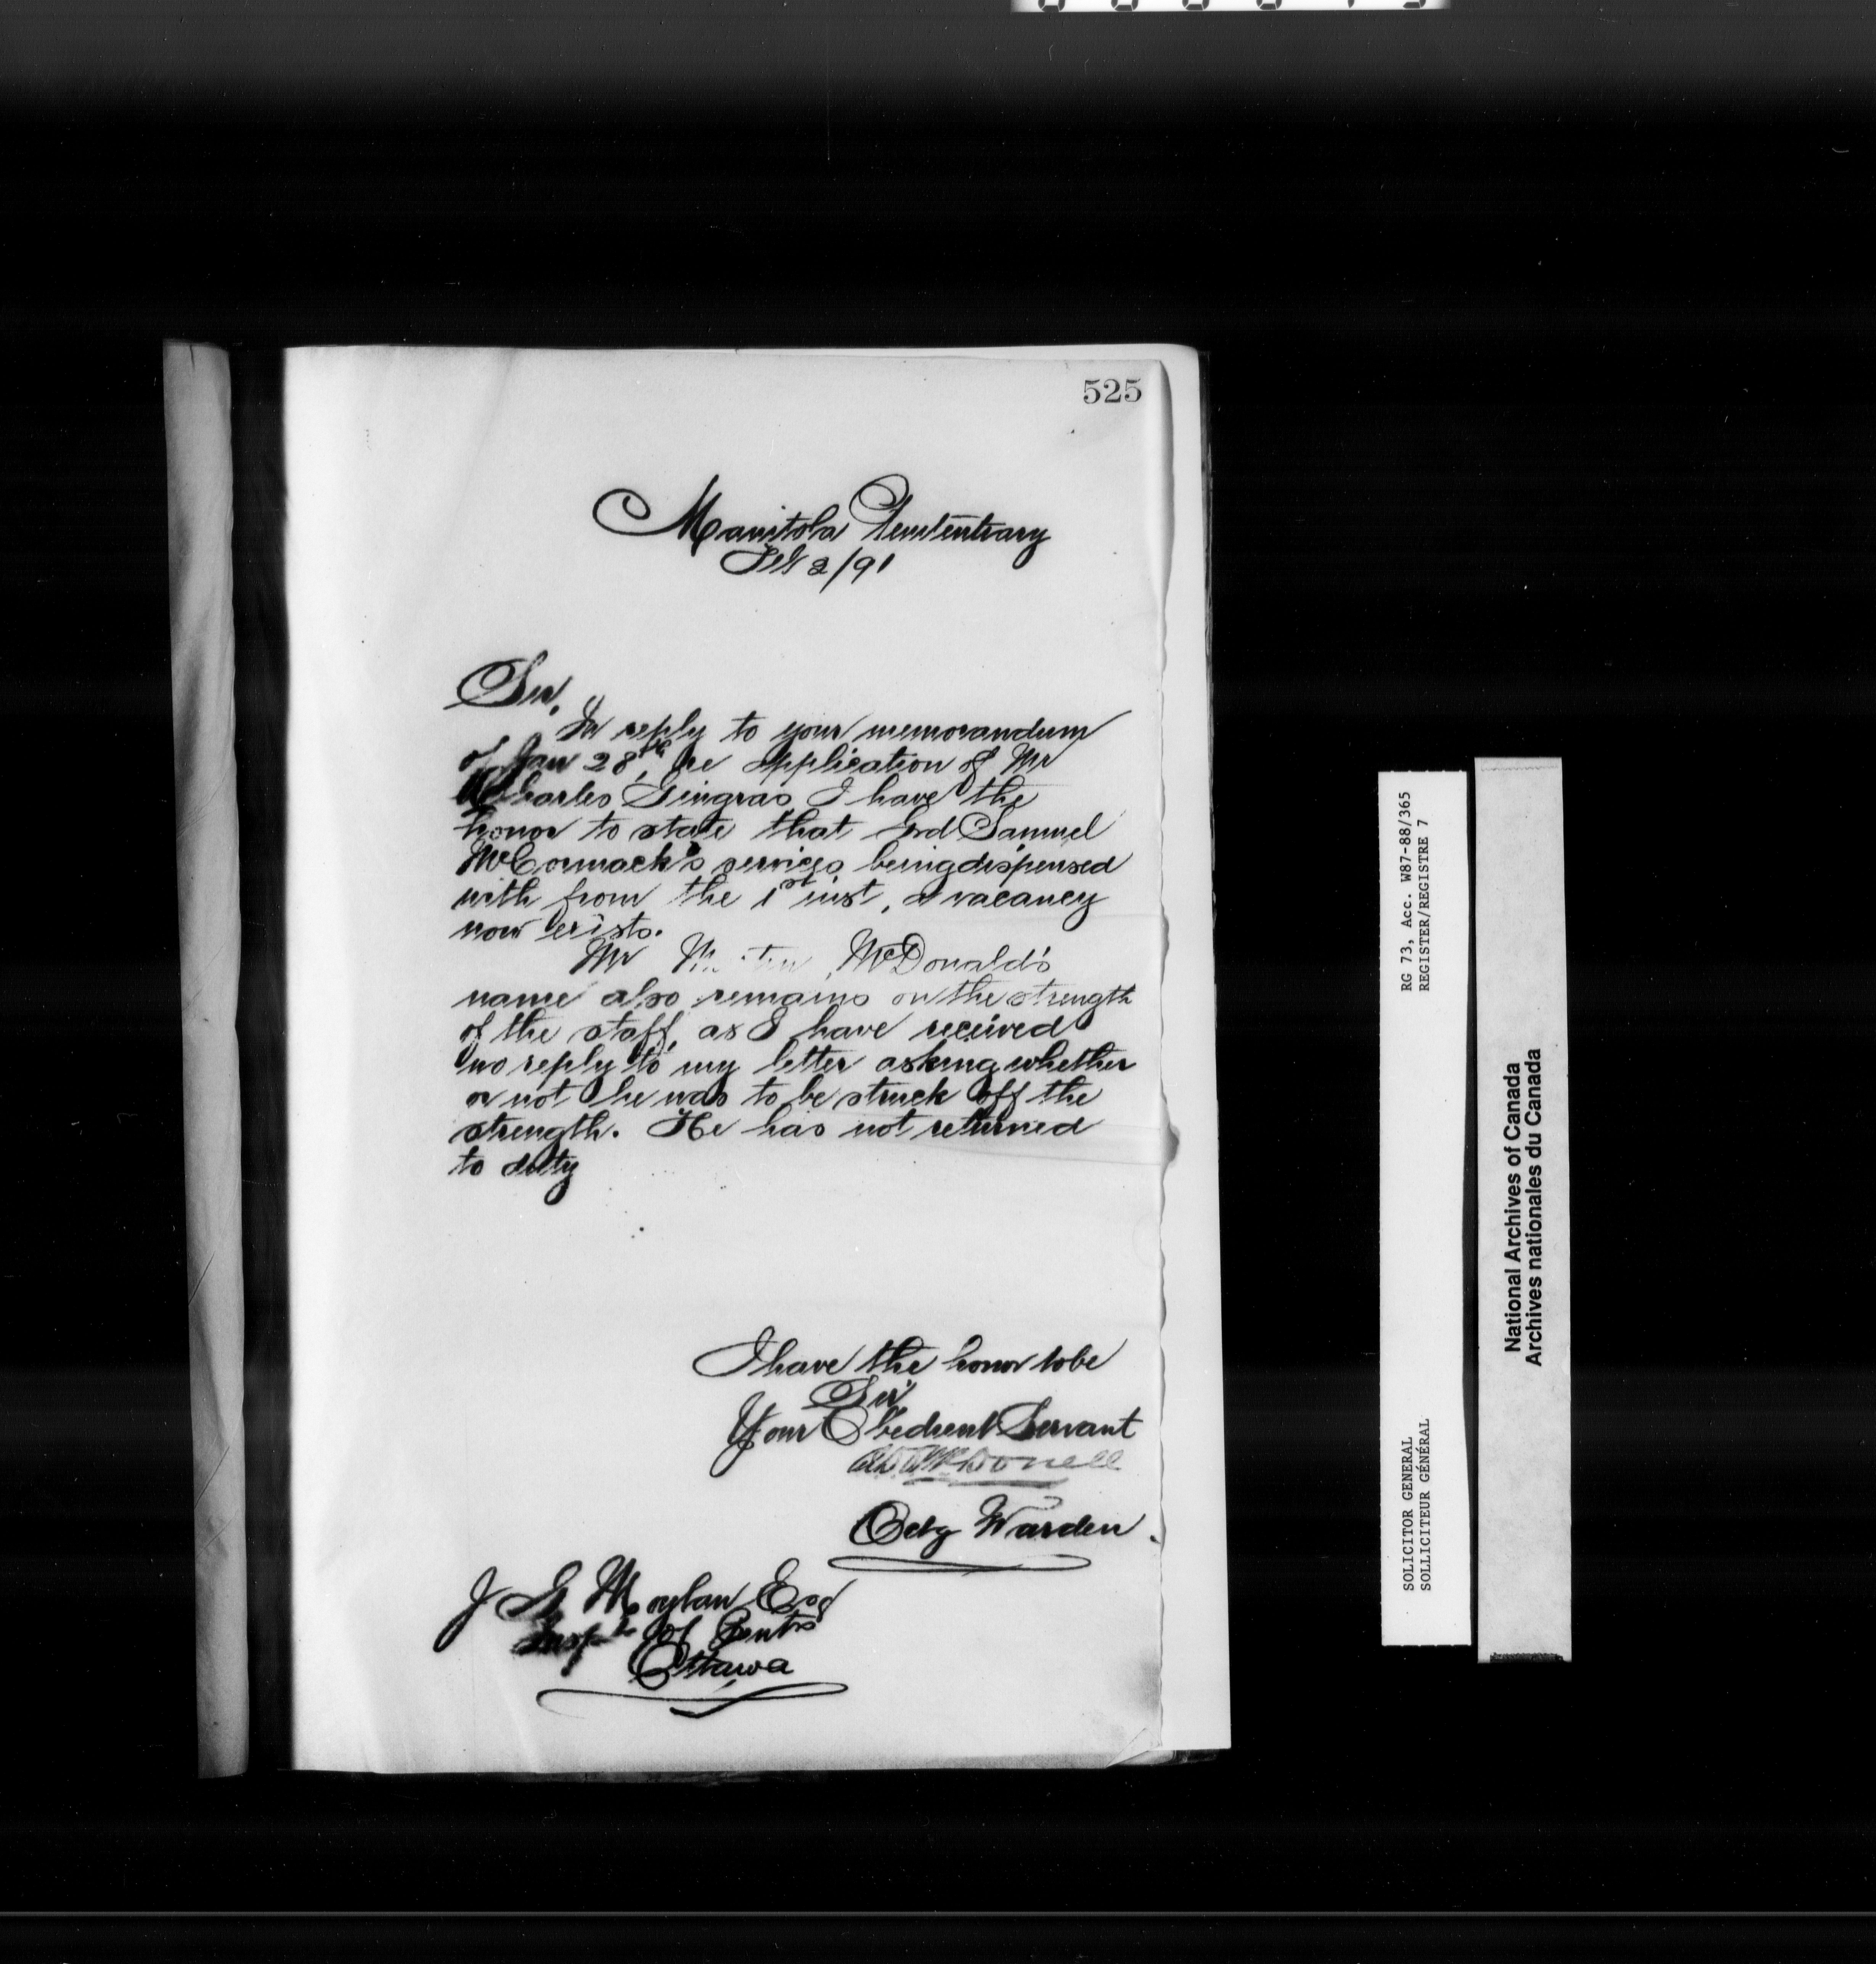 525
Manitoba Penitentiary
Feb 2/91
Sir,
In reply to your memorandum
of Jan 28th, re application of Mr
Charles Gingras I have the
honor to state that Grd Samuel
McCormack's services being dispensed
with from the 1st inst, a vacancy
now exists.
Mr McDonald's
name also remains on the strength
of the staff, as I have received
no reply to my letter asking whether
or not he was to be struck off the
strength. He has not returned
to duty
I have the honor to be
Sir
Your Obedient Servant
McDonell
Actg Warden.
J G Moylan Esq
Inspr of Pentrs
Ottawa
RG 73, Acc. W87-88/365
REGISTER/REGISTRE 7
SOLICITOR GENERAL
SOLLICITEUR GÉNÉRAL
National Archives of Canada
Archives nationales du Canada